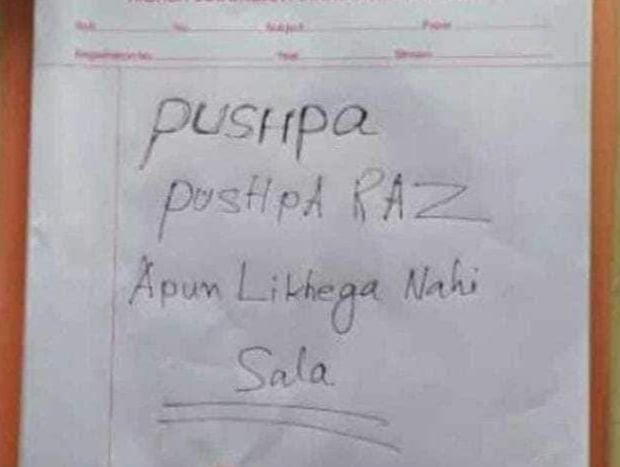 Subject Paper
Registration No. Year
pusHpa
pusHpA RAZ
Apun Likhega Nahi
Sala